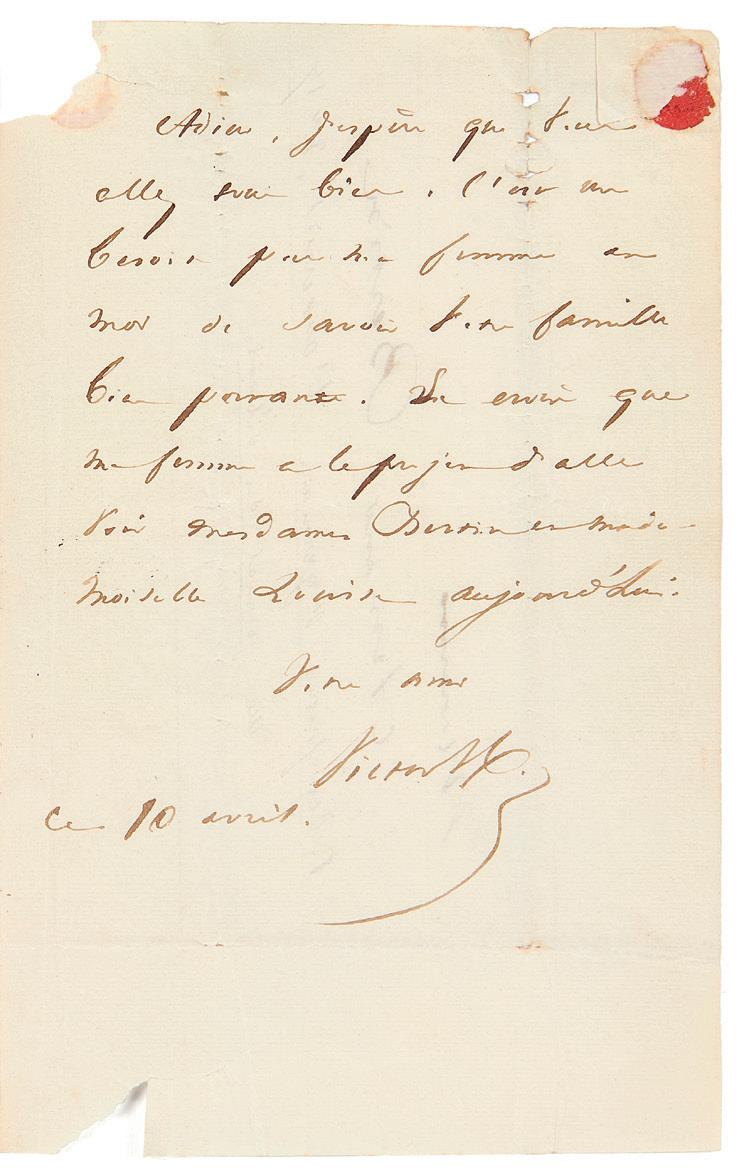 Adieu, j'espère que vous
allez tous bien. C'est un
besoin pour ma femme et
moi de savoir votre famille
bien portante. Je crois que
ma femme a le projet d'aller
voir mesdames Bertin et made-
moiselle Louise aujourd'hui.
Votre ami
Victor H.
ce 10 avril.